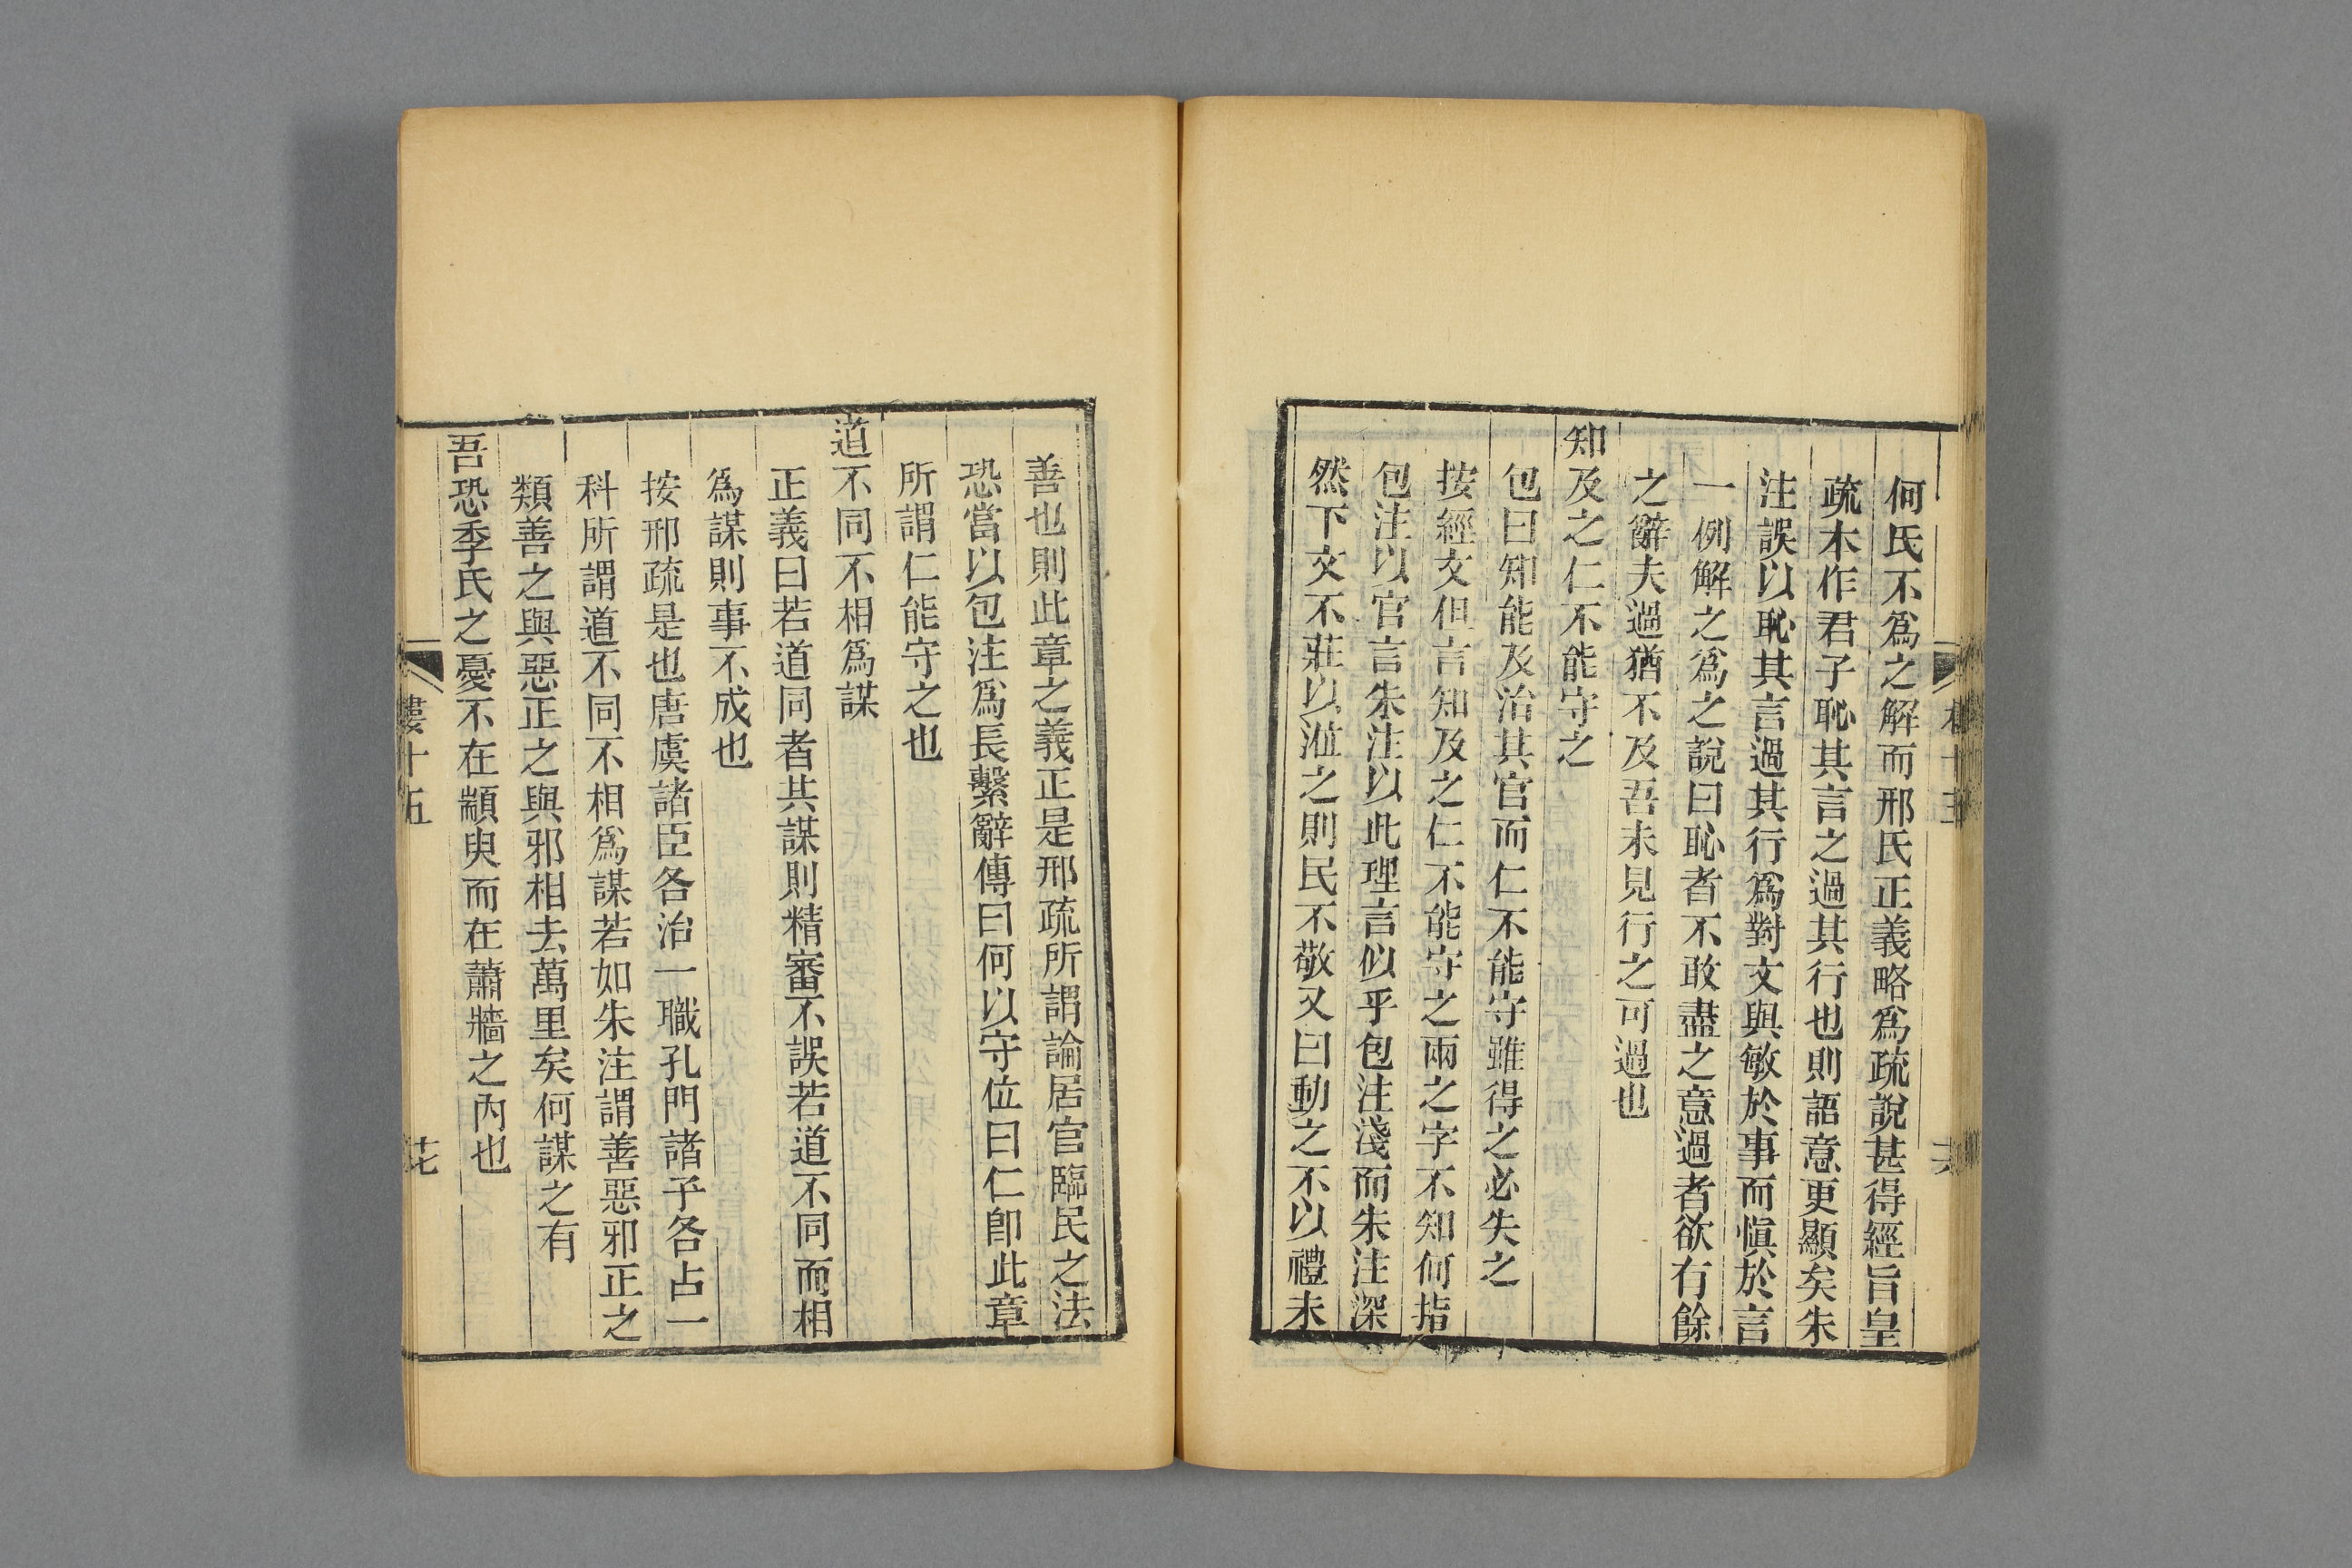 何氏不爲之解而邢氏正義略爲疏說甚得經旨皇
疏本作君子恥其言之過其行也則語意更顯矣朱
注誤以恥其言過其行爲對文與敏於事而愼於言
一例解之爲之說曰恥者不敢盡之意過者欲有餘
之辭夫過猶不及吾未見行之可過也
知及之仁不能守之
包曰知能及治其官而仁不能守雖得之必失之
按經文但言知及之仁不能守之兩之字不知何指
包注以官言朱注以此理言似乎包注淺而朱注深
然下文不莊以涖之則民不敬又曰動之不以禮未
善也則此章之義正是邢疏所謂論居官臨民之法
恐當以包注爲長繫辭傳曰何以守位曰仁卽此章
所謂仁能守之也
道不同不相爲謀
正義曰若道同者共謀則精審不誤若道不同而相
爲謀則事不成也
按邢疏是也唐虞諸臣各治一職孔門諸子各占一
科所謂道不同不相爲謀若如朱注謂善惡邪正之
類善之與惡正之與邪相去萬里矣何謀之有
吾恐季氏之憂不在顓臾而在蕭牆之內也
十五